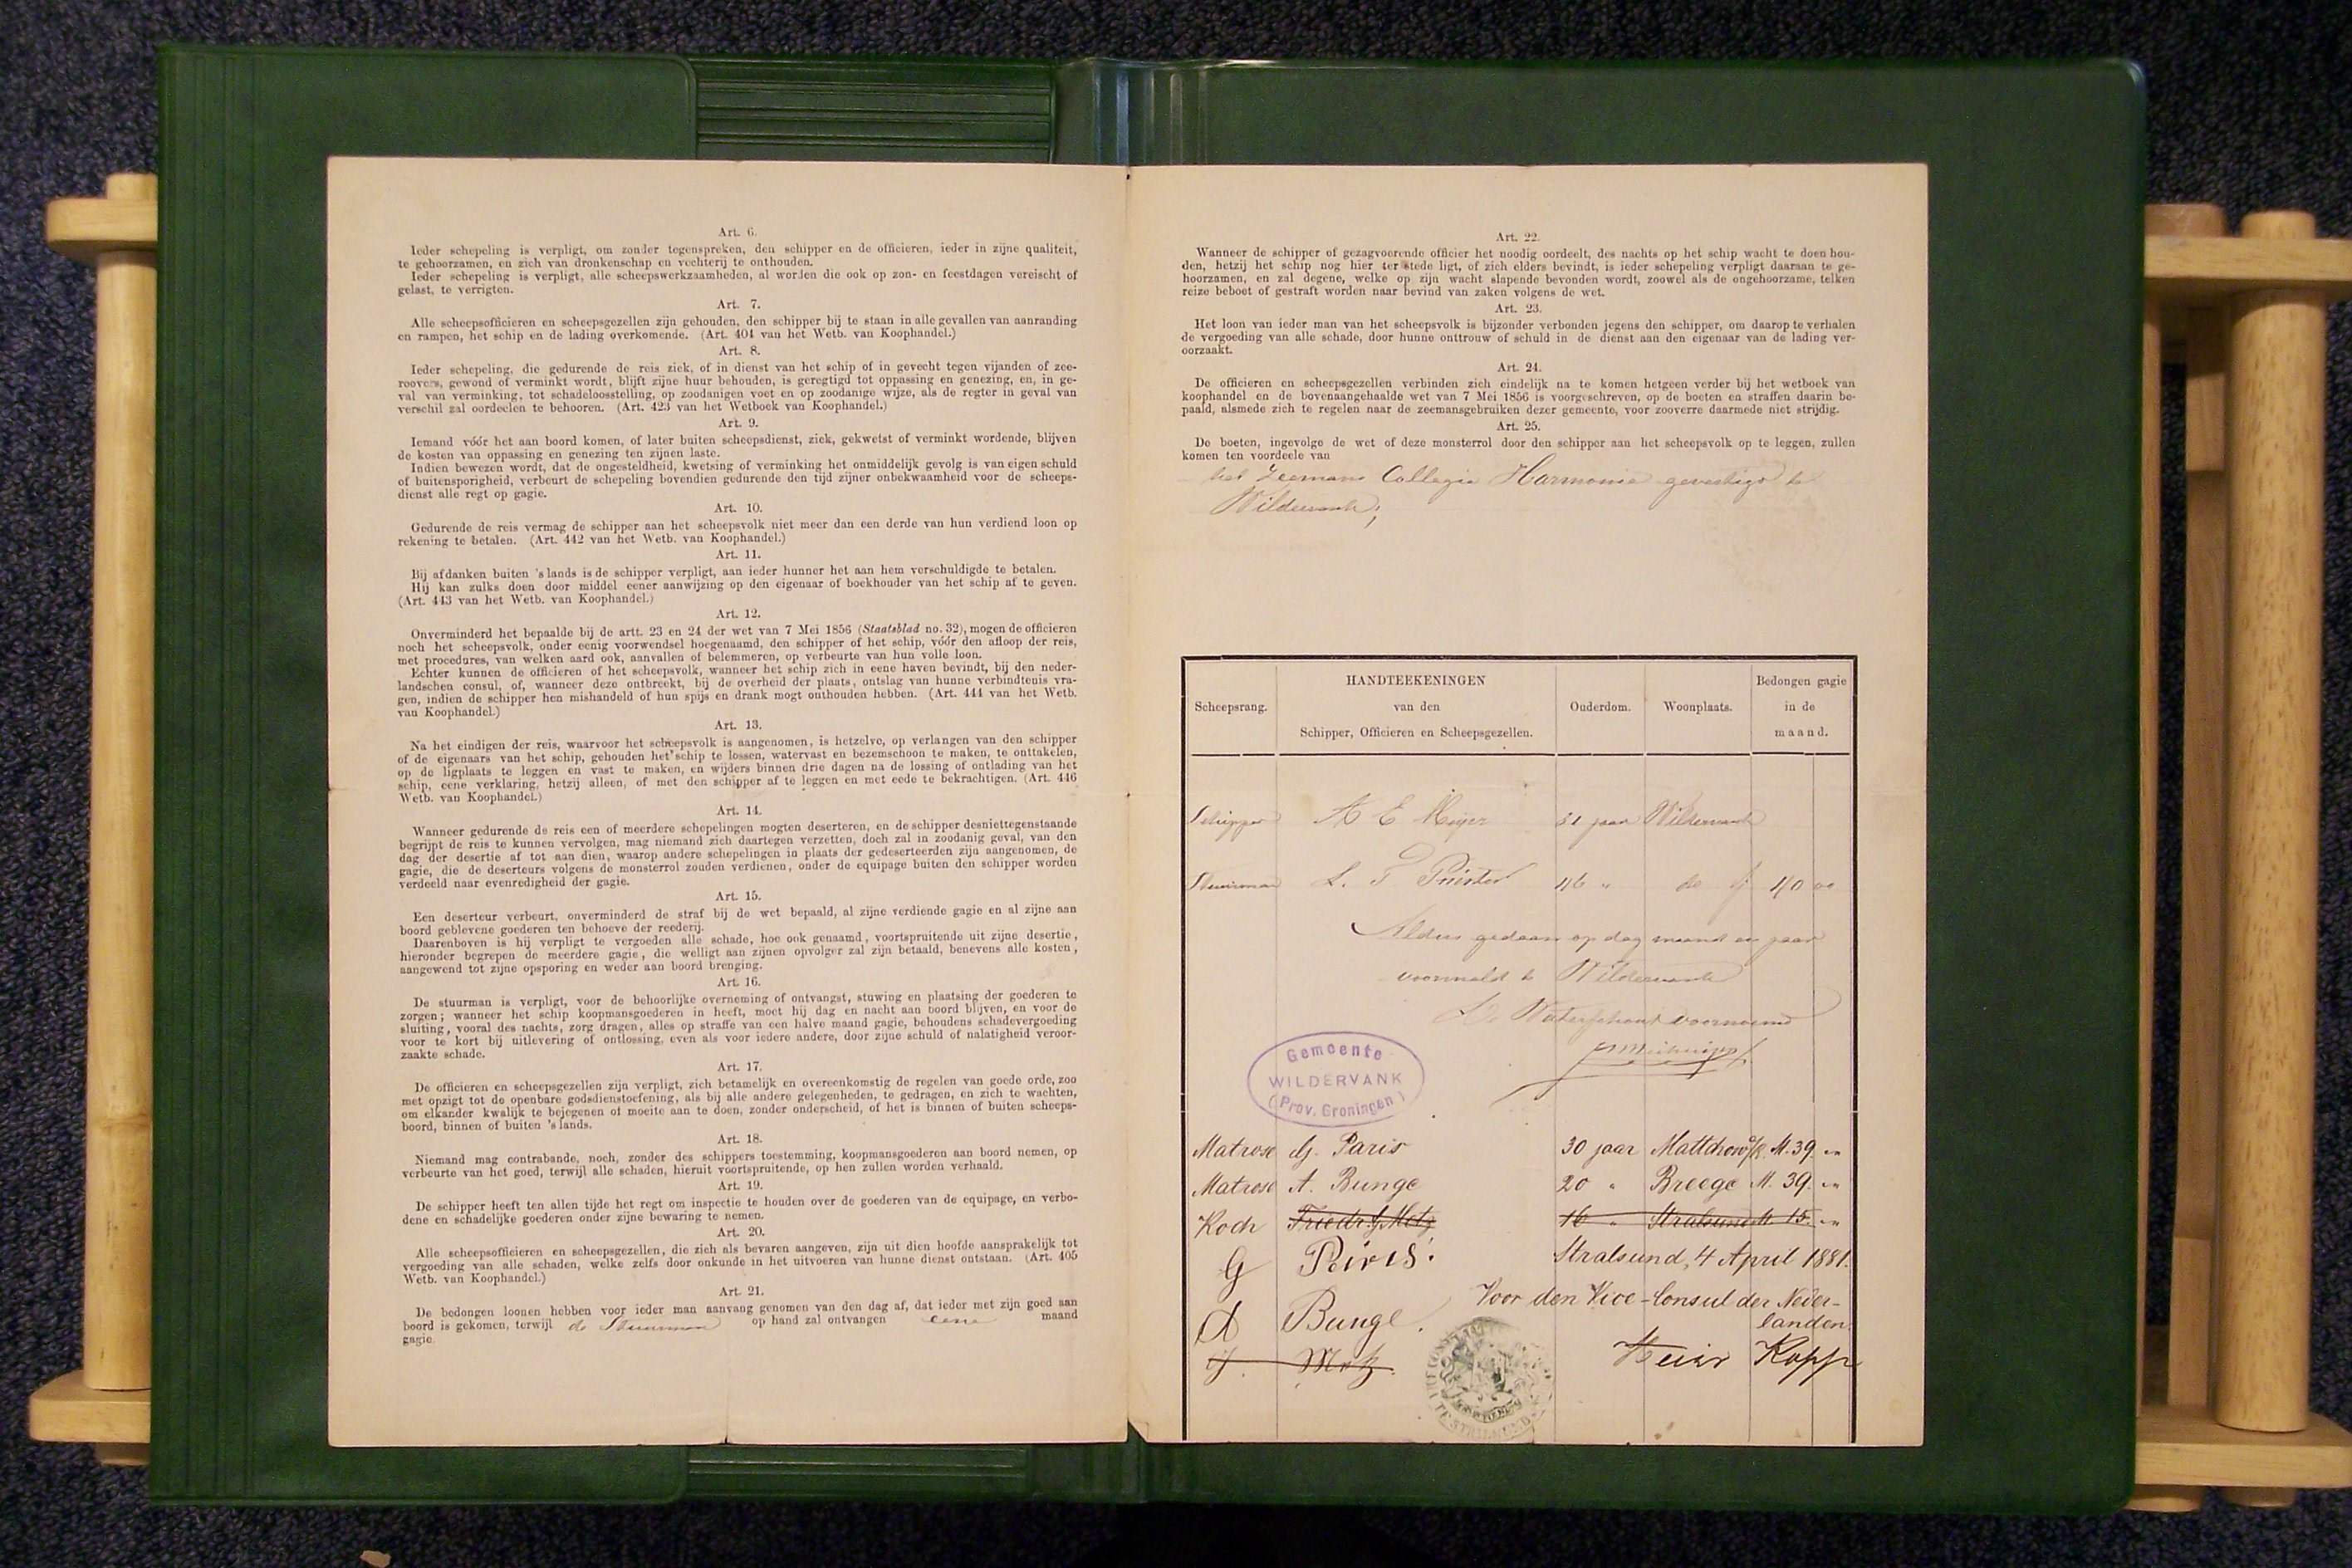 Art. 6.
Ieder schepeling is verpligt, om zonder tegenspreken, den schipper en de officieren, ieder in zijne qualiteit,
te gehoorzamen, en zich van dronkenschap en vechterij te onthouden.
Ieder schepeling is verpligt, alle scheepswerkzaamheden, al worden die ook op zon- en feestdagen vereischt of
gelast, te verrigten.
Art. 7.
Alle scheepsofficieren en scheepsgezellen zijn gehouden, den schipper bij te staan in alle gevallen van aanranding
en rampen, het schip en de lading overkomende. (Art. 404 van het Wetb. van Koophandel.)
Art. 8.
Ieder schepeling, die gedurende de reis ziek, of in dienst van het schip of in gevecht tegen vijanden of zee-
roovers, gewond of verminkt wordt, blijft zijne huur behouden, is geregtigd tot oppassing en genezing, en, in ge-
val van verminking, tot schadeloosstelling, op zoodanigen voet en op zoodanige wijze, als de regter in geval van
verschil zal oordeelen te behooren. (Art. 423 van het Wetboek van Koophandel.)
Art. 9.
Iemand vóór het aan boord komen, of later buiten scheepsdienst, ziek, gekwetst of verminkt wordende, blijven
de kosten van oppassing en genezing ten zijnen laste.
Indien bewezen wordt, dat de ongesteldheid, kwetsing of verminking het onmiddelijk gevolg is van eigen schuld
of buitensporigheid, verbeurt de schepeling bovendien gedurende den tijd zijner onbekwaamheid voor de scheeps-
dienst alle regt op gagie.
Art. 10.
Gedurende de reis vermag de schipper aan het scheepsvolk niet meer dan een derde van hun verdiend loon op
rekening te betalen. (Art. 442 van het Wetb. van Koophandel.)
Art. 11.
Bij afdanken buiten 's lands is de schipper verpligt, aan ieder hunner het aan hem verschuldigde te betalen.
Hij kan zulks doen door middel eener aanwijzing op den eigenaar of boekhouder van het schip af te geven.
(Art. 443 van het Wetb. van Koophandel.)
Art. 12.
Onverminderd het bepaalde bij de artt. 23 en 24 der wet van 7 Mei 1856 (Staatsblad no. 32), mogen de officieren
noch het scheepsvolk, onder eenig voorwendsel hoegenaamd, den schipper of het schip, vóór den afloop der reis,
met procedures, van welken aard ook, aanvallen of belemmeren, op verbeurte van hun volle loon.
Echter kunnen de officieren of het scheepsvolk, wanneer het schip zich in eene haven bevindt, bij den neder-
landschen consul, of, wanneer deze ontbreekt, bij de overheid der plaats, ontslag van hunne verbindtenis vra-
gen, indien de schipper hen mishandeld of hun spijs en drank mogt onthouden hebben. (Art. 444 van het Wetb.
van Koophandel.)
Art. 13.
Na het eindigen der reis, waarvoor het scheepsvolk is aangenomen, is hetzelve, op verlangen van den schipper
of de eigenaars van het schip, gehouden het schip te lossen, watervast en bezemschoon te maken, te onttakelen,
op de ligplaats te leggen en vast te maken, en wijders binnen drie dagen na de lossing of ontlading van het
schip, eene verklaring, hetzij alleen, of met den schipper af te leggen en met eede te bekrachtigen. (Art. 446
Wetb. van Koophandel.)
Art. 14.
Wanneer gedurende de reis een of meerdere schepelingen mogten deserteren, en de schipper desniettegenstaande
begrijpt de reis te kunnen vervolgen, mag niemand zich daartegen verzetten, doch zal in zoodanig geval, van den
dag der desertie af tot aan dien, waarop andere schepelingen in plaats der gedeserteerden zijn aangenomen, de
gagie, die de deserteurs volgens de monsterrol zouden verdienen, onder de equipage buiten den schipper worden
verdeeld naar evenredigheid der gagie.
Art. 15.
Een deserteur verbeurt, onverminderd de straf bij de wet bepaald, al zijne verdiende gagie en al zijne aan
boord geblevene goederen ten behoeve der reederij.
Daarenboven is hij verpligt te vergoeden alle schade, hoe ook genaamd, voortspruitende uit zijne desertie,
hieronder begrepen de meerdere gagie, die welligt aan zijnen opvolger zal zijn betaald, benevens alle kosten,
aangewend tot zijne opsporing en weder aan boord brenging.
Art. 16.
De stuurman is verpligt, voor de behoorlijke overneming of ontvangst, stuwing en plaatsing der goederen te
zorgen; wanneer het schip koopmansgoederen in heeft, moet hij dag en nacht aan boord blijven, en voor de
sluiting, vooral des nachts, zorg dragen, alles op straffe van een halve maand gagie, behoudens schadevergoeding
voor te kort bij uitlevering of ontlossing, even als voor iedere andere, door zijne schuld of nalatigheid veroor-
zaakte schade.
Art. 17.
De officieren en scheepsgezellen zijn verpligt, zich betamelijk en overeenkomstig de regelen van goede orde, zoo
met opzigt tot de openbare godsdienstoefening, als bij alle andere gelegenheden, te gedragen, en zich te wachten,
om elkander kwalijk te bejegenen of moeite aan te doen, zonder onderscheid, of het is binnen of buiten scheeps-
boord, binnen of buiten 's lands.
Art. 18.
Niemand mag contrabande, noch, zonder des schippers toestemming, koopmansgoederen aan boord nemen, op
verbeurte van het goed, terwijl alle schaden, hieruit voortspruitende, op hen zullen worden verhaald.
Art. 19.
De schipper heeft ten allen tijde het regt om inspectie te houden over de goederen van de equipage, en verbo-
dene en schadelijke goederen onder zijne bewaring te nemen.
Art. 20.
Alle scheepsofficieren en scheepsgezellen, die zich als bevaren aangeven, zijn uit dien hoofde aansprakelijk tot
vergoeding van alle schaden, welke zelfs door onkunde in het uitvoeren van hunne dienst ontstaan. (Art. 405
Wetb. van Koophandel.)
Art. 21.
De bedongen loonen hebben voor ieder man aanvang genomen van den dag af, dat ieder met zijn goed aan
boord is gekomen, terwijl de Stuurman op hand zal ontvangen eene maand
gagie.
Art. 22.
Wanneer de schipper of gezagvoerende officier het noodig oordeelt, des nachts op het schip wacht te doen hou-
den, hetzij het schip nog hier ter stede ligt, of zich elders bevindt, is ieder schepeling verpligt daaraan te ge-
hoorzamen, en zal degene, welke op zijn wacht slapende bevonden wordt, zoowel als de ongehoorzame, telken
reize beboet of gestraft worden naar bevind van zaken volgens de wet.
Art. 23.
Het loon van ieder man van het scheepsvolk is bijzonder verbonden jegens den schipper, om daarop te verhalen
de vergoeding van alle schade, door hunne onttrouw of schuld in de dienst aan den eigenaar van de lading ver-
oorzaakt.
Art. 24.
De officieren en scheepsgezellen verbinden zich eindelijk na te komen hetgeen verder bij het wetboek van
koophandel en de bovenaangehaalde wet van 7 Mei 1856 is voorgeschreven, op de boeten en straffen daarin be-
paald, alsmede zich te regelen naar de zeemansgebruiken dezer gemeente, voor zooverre daarmede niet strijdig.
Art. 25.
De boeten, ingevolge de wet of deze monsterrol door den schipper aan het scheepsvolk op te leggen, zullen
komen ten voordeele van
het Zeemans Collegie Harmonie gevestigd te
Wildervank;
Scheepsrang. HANDTEEKENINGEN van den Schipper, Officieren en Scheepsgezellen. Ouderdom. Woonplaats. Bedongen gagie in de maand.
Schipper A E Meijer 31 jaar Wildervank
Stuurman L. T. Prinster 46 " do f 40 00
Aldus gedaan op dag maand en jaar
voormeld te Wildervank
De Waterschout voornoemd
Gemeente
WILDERVANK
(Prov. Groningen)
Matrose G. Paris 30 jaar Mattchow a/R. M. 39. "
Matrose A. Bunge 20 " Breege M. 39. "
Koch Friedr. G. Metz 16 " Stralsund M. 15. "
G Paris. Stralsund, 4 April 1881.
Voor den Vice-Consul der Neder-
landen.
A Bunge.
f. Metz. Heinr Kopp